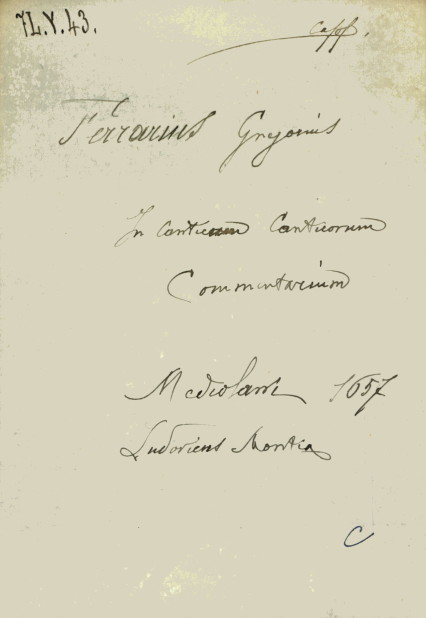 7L.Y.43.
Ferrarius Gregorius
In Canticum Canticorum
Commentarium
Mediolani 1657
Ludovicus Montia
C